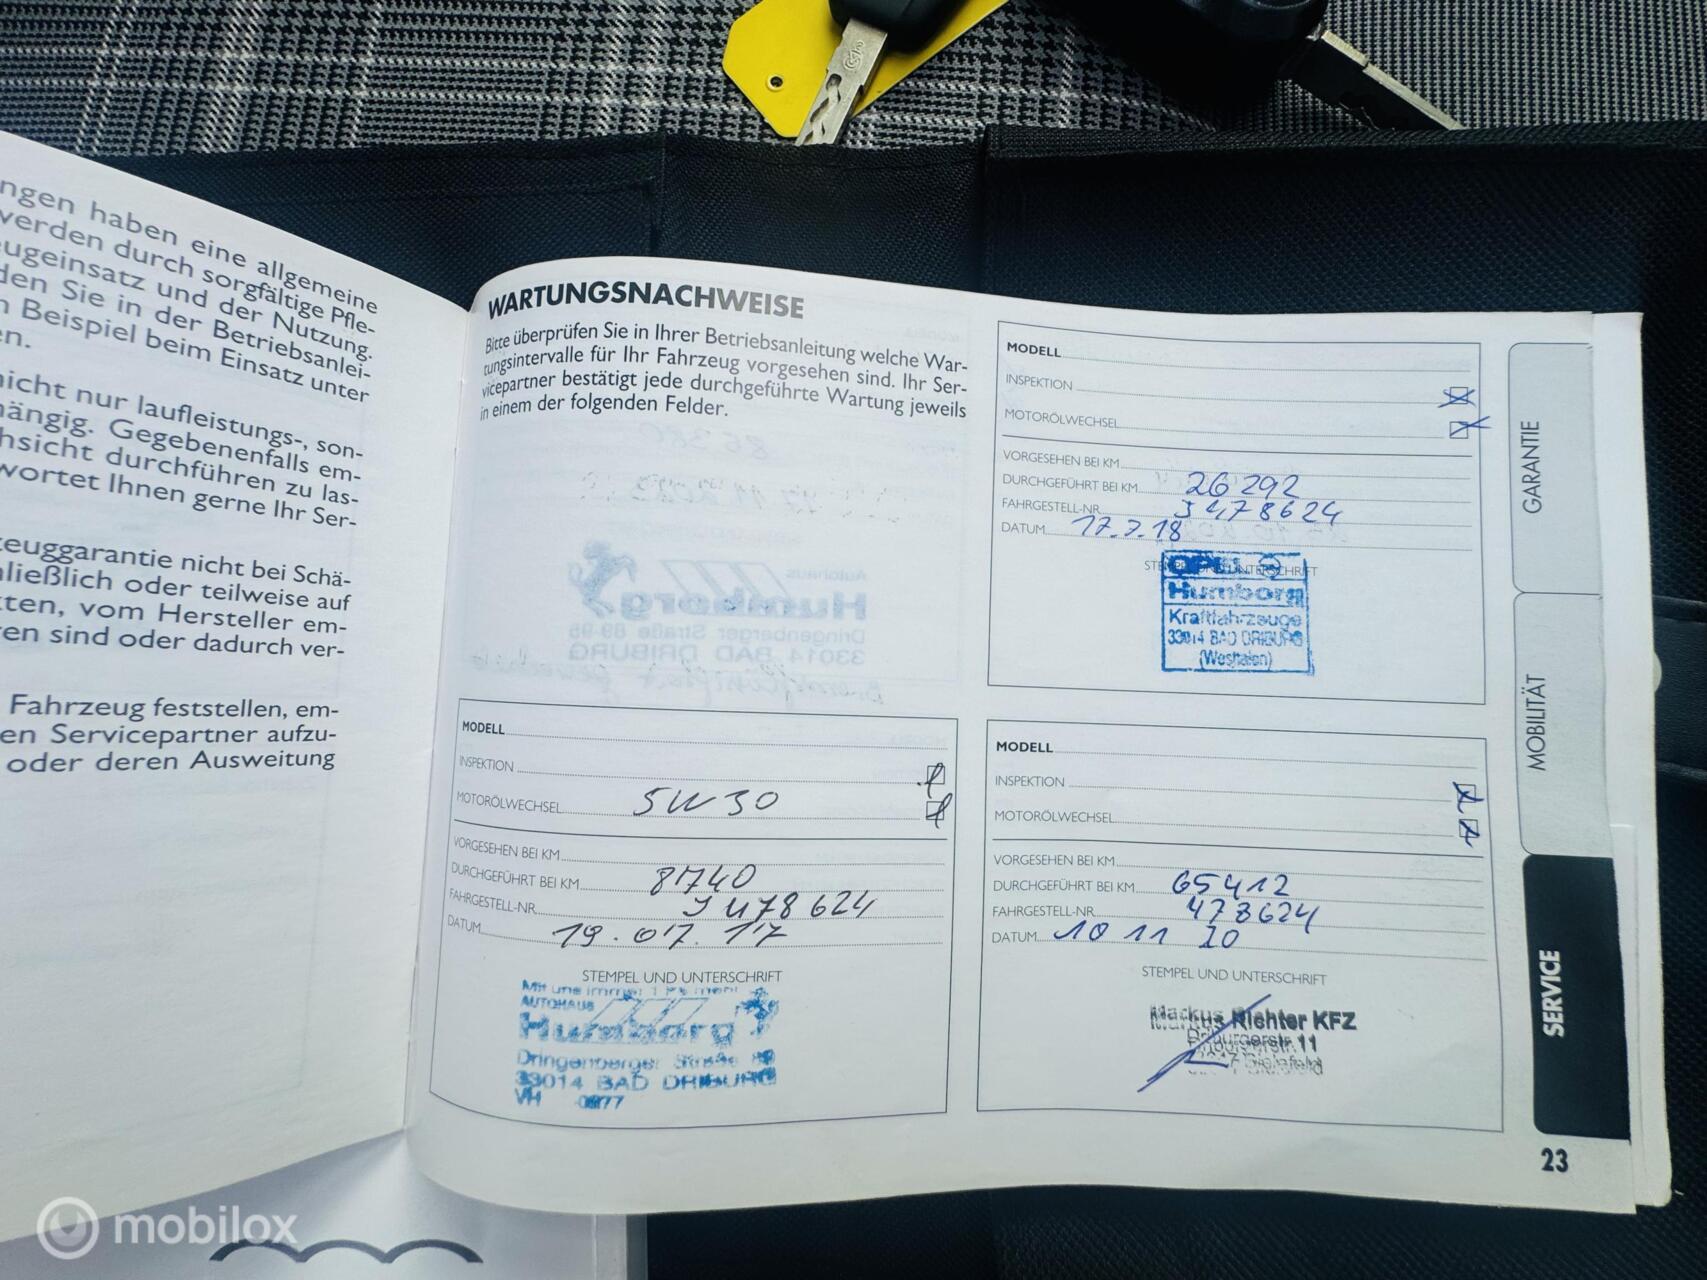 ngen haben eine allgemeine
werden durch sorgfältige Pfle-
eugeinsatz und der Nutzung.
den Sie in der Betriebsanlei-
n Beispiel beim Einsatz unter
en.
nicht nur laufleistungs-, son-
hängig. Gegebenenfalls em-
hsicht durchführen zu las-
wortet Ihnen gerne Ihr Ser-
euggarantie nicht bei Schä-
hließlich oder teilweise auf
kten, vom Hersteller em-
ren sind oder dadurch ver-
Fahrzeug feststellen, em-
en Servicepartner aufzu-
oder deren Ausweitung
WARTUNGSNACHWEISE
Bitte überprüfen Sie in Ihrer Betriebsanleitung welche War-
tungsintervalle für Ihr Fahrzeug vorgesehen sind. Ihr Ser-
vicepartner bestätigt jede durchgeführte Wartung jeweils
in einem der folgenden Felder.
MODELL
INSPEKTION
MOTORÖLWECHSEL
VORGESEHEN BEI KM
DURCHGEFÜHRT BEI KM 26 292
FAHRGESTELL-NR. J478624
DATUM 17.7.18
STEMPEL UND UNTERSCHRIFT
OPEL
Humborg
Kraftfahrzeuge
33014 BAD DRIBURG
(Westfalen)
MODELL
INSPEKTION
MOTORÖLWECHSEL 5W30
VORGESEHEN BEI KM
DURCHGEFÜHRT BEI KM 8740
FAHRGESTELL-NR. J478624
DATUM 19.07.17
STEMPEL UND UNTERSCHRIFT
Mit uns immer 1 PS mehr
AUTOHAUS
Humborg
Dringenberger Straße
33014 BAD DRIBURG
VH
MODELL
INSPEKTION
MOTORÖLWECHSEL
VORGESEHEN BEI KM
DURCHGEFÜHRT BEI KM 65412
FAHRGESTELL-NR. 478624
DATUM 10 11 20
STEMPEL UND UNTERSCHRIFT
Markus Richter KFZ
Driburgerstr. 11
Bielefeld
GARANTIE
MOBILITÄT
SERVICE
23
mobilox